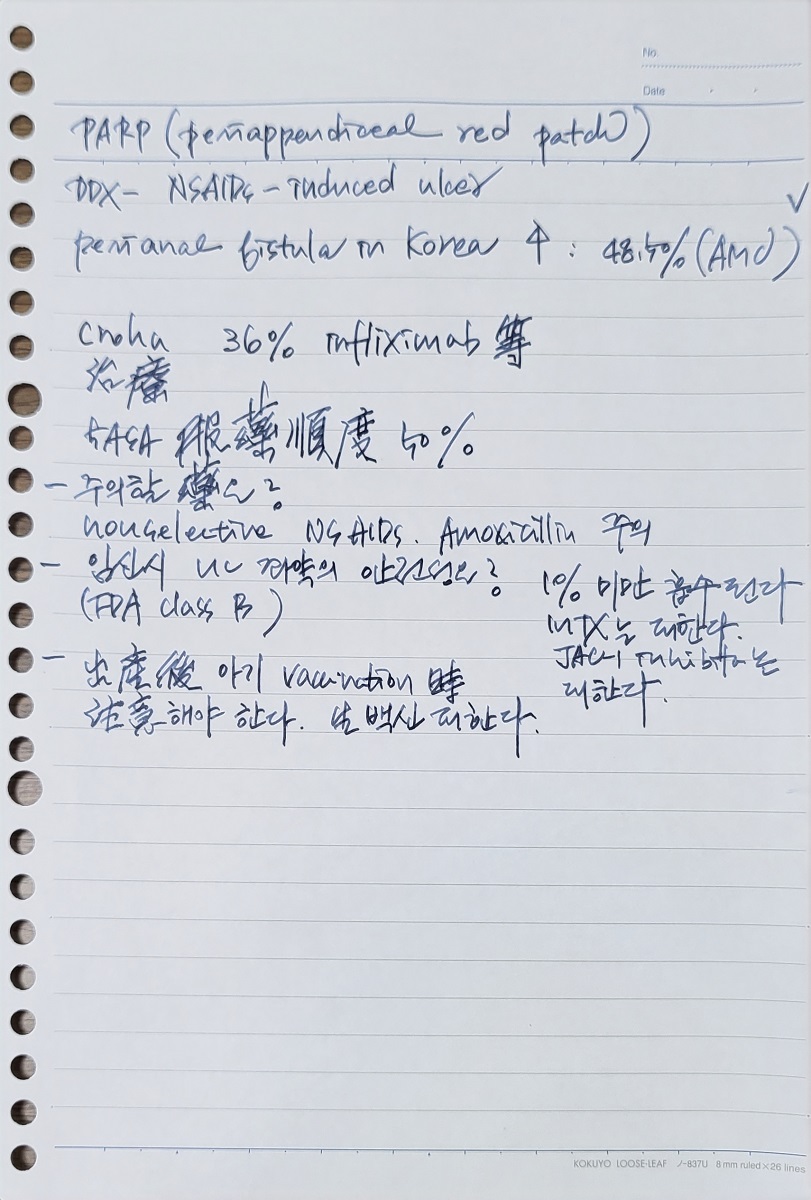 No.
Date
PARP (periappendiceal red patch)
DDX- NSAIDs-induced ulcer
perianal fistula in Korea ↑ : 48.5% (AMC)
Crohn 36% infliximab 等
治療
5ASA 服藥順度 50%
- 주의할 藥은?
nonselective NSAIDs. Amoxicillin 주의
- 임신시 UC 관련약의 안전성은? 1% 미만 흡수된다
(FDA class B) MTX는 피한다.
JAK-i inhibitor는
피한다.
- 出産後 아기 vaccination 時
注意해야 한다. 生백신 피한다.
KOKUYO LOOSE-LEAF ノ-837U 8 mm ruled×26 lines